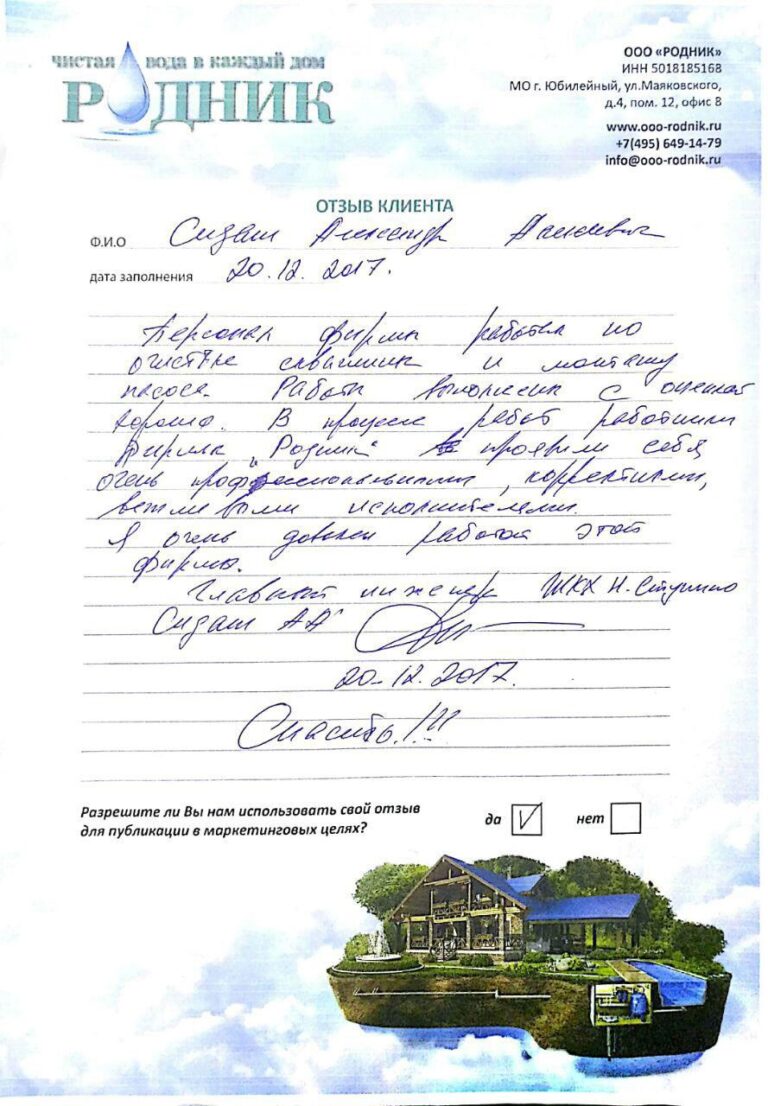 чистая вода в каждый дом
РОДНИК
ООО «РОДНИК»
ИНН 5018185168
МО г. Юбилейный, ул.Маяковского,
д.4, пом. 12, офис 8
www.ooo-rodnik.ru
+7(495) 649-14-79
info@ooo-rodnik.ru
ОТЗЫВ КЛИЕНТА
Ф.И.О Сидаш Александр
дата заполнения 20.12.2017.
Персонал фирмы работал по
очистке скважины и монтажу
насоса. Работы выполнены с оценкой
хорошо. В процессе работ работники
фирмы "Родник" проявили себя
очень профессиональными, корректными,
вежливыми исполнителями.
Я очень доволен работой этой
фирмы.
Главный инженер ЖКХ Н. Ступино
Сидаш АА
20.12.2017.
Спасибо!!!
Разрешите ли Вы нам использовать свой отзыв
для публикации в маркетинговых целях?
да нет